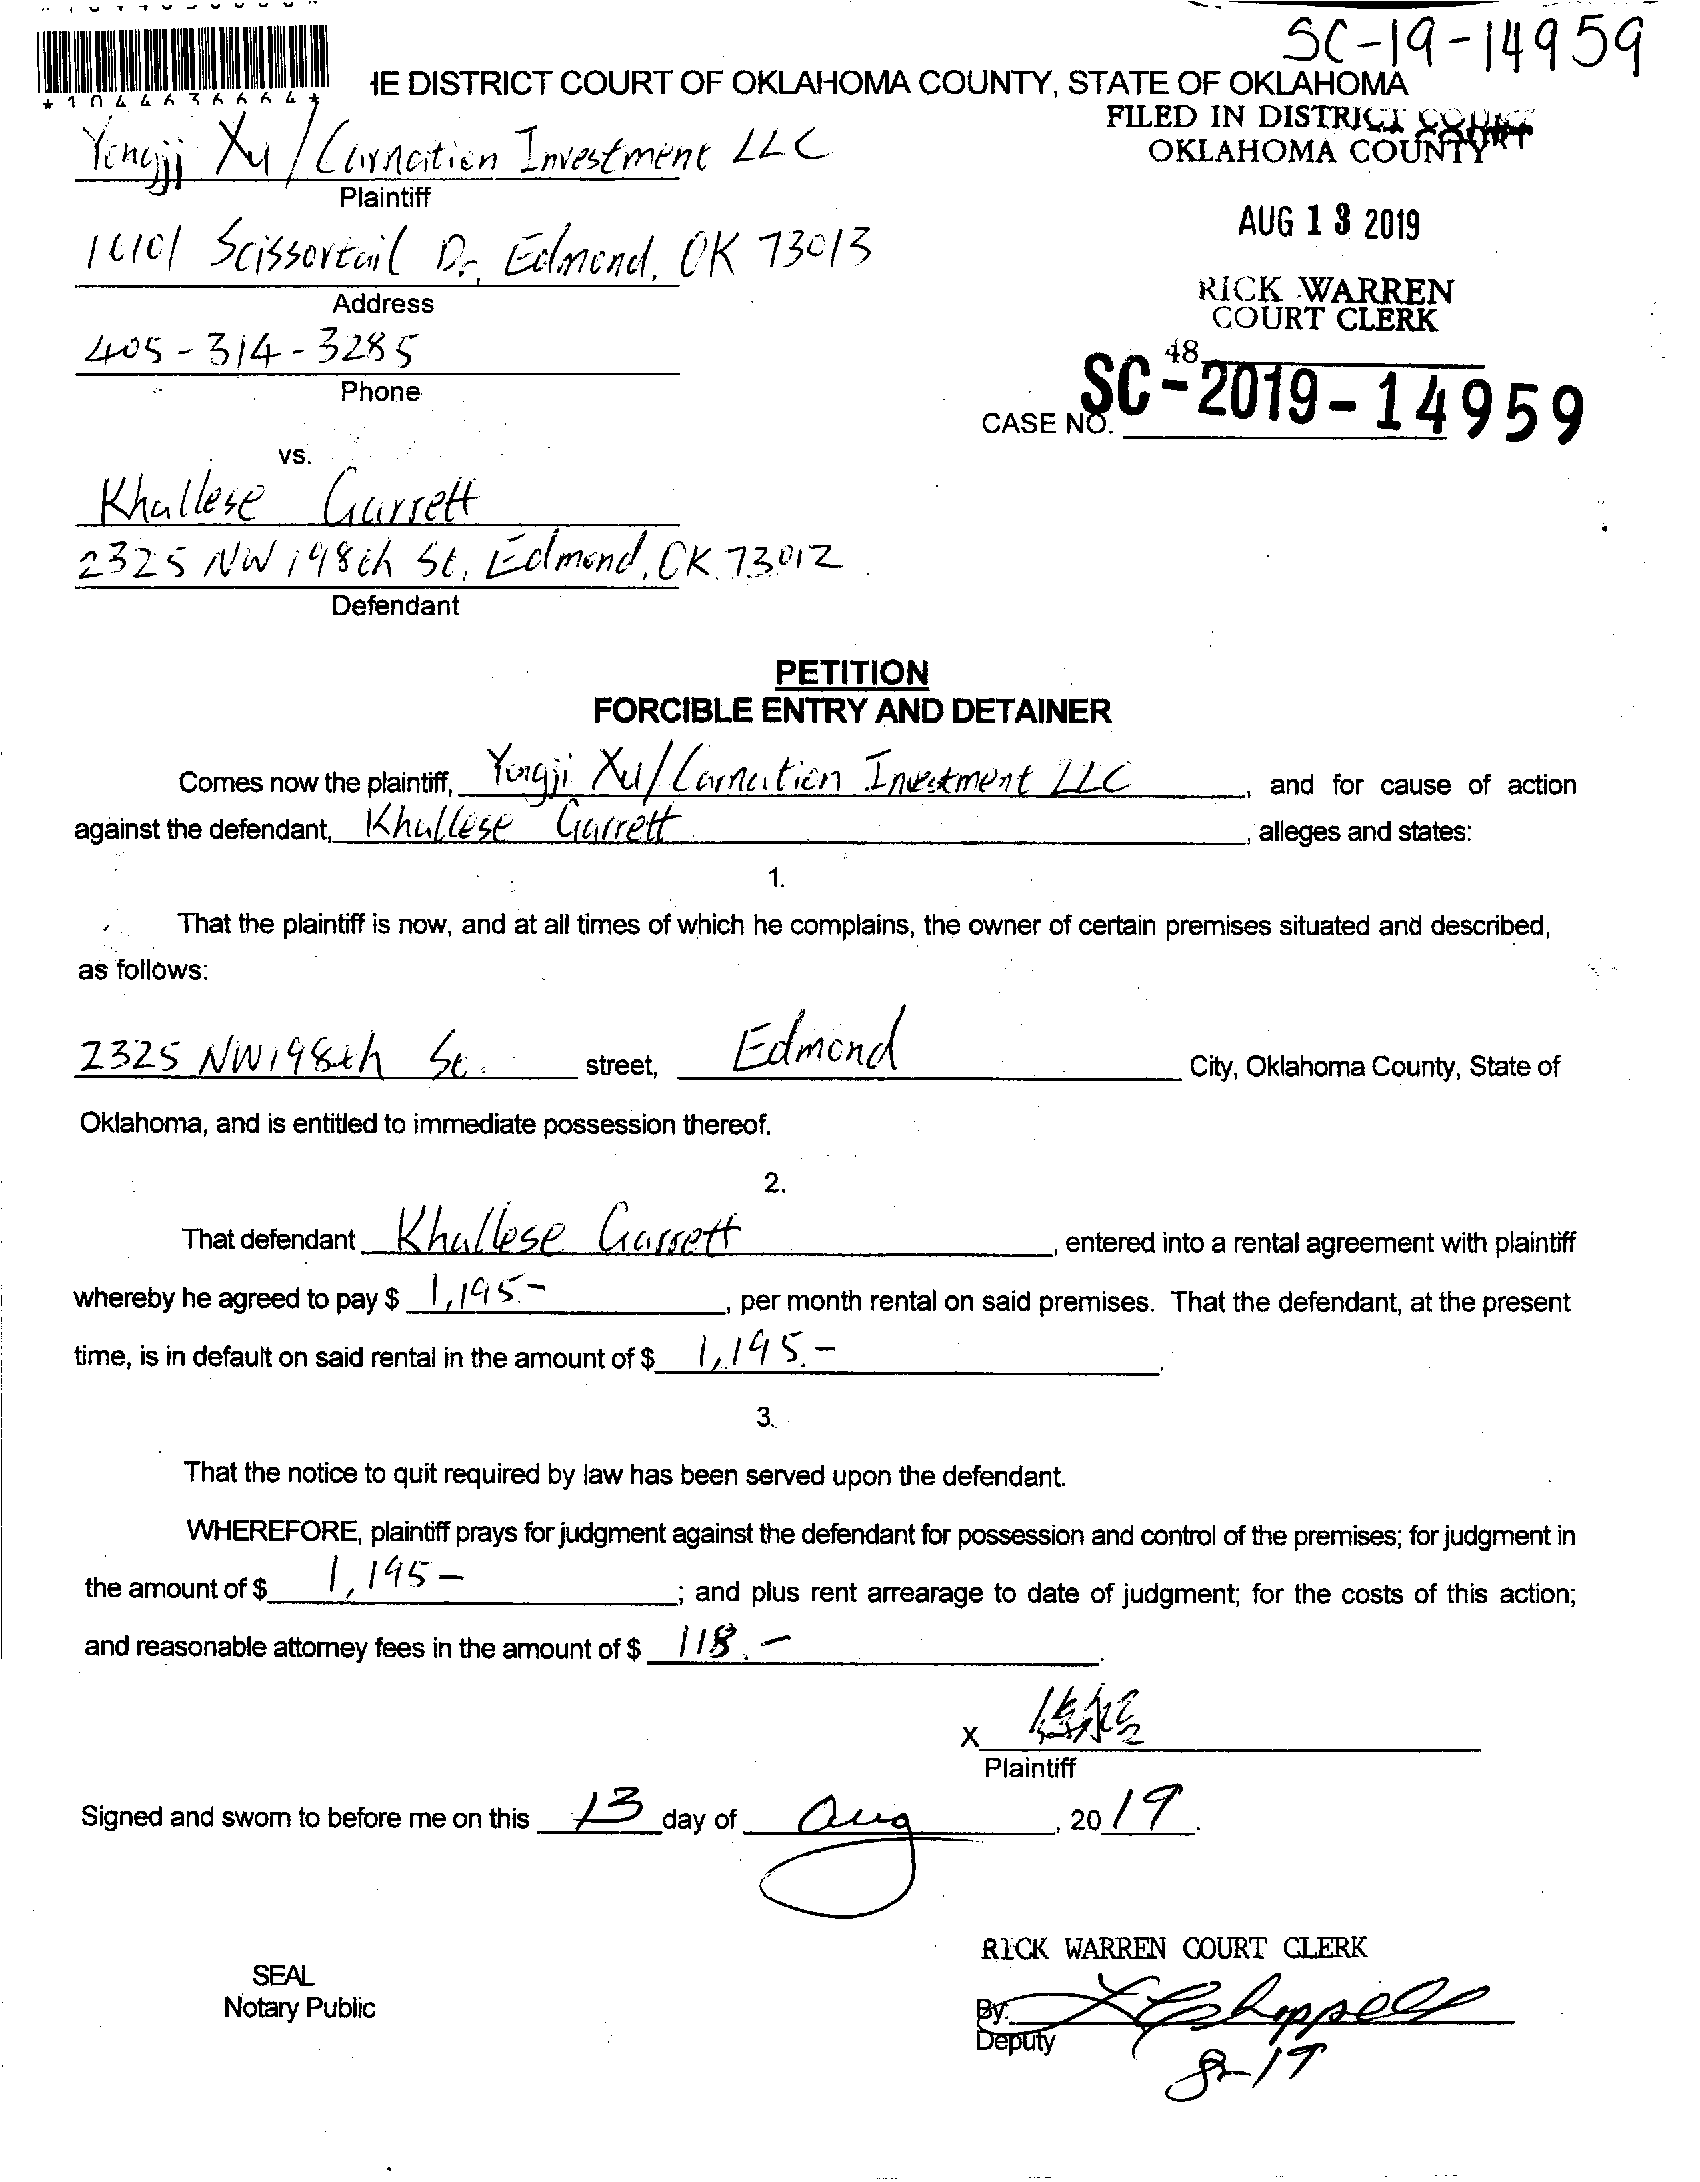 SC-19-14959
*1044636664*
HE DISTRICT COURT OF OKLAHOMA COUNTY, STATE OF OKLAHOMA
FILED IN DISTRICT COURT
OKLAHOMA COUNTY
Yongji Xu / Carnation Investment LLC
Plaintiff
AUG 13 2019
Scissortail Dr, Edmond, OK 73013
Address
RICK WARREN
COURT CLERK
405-314-3285
Phone
48
CASE NO. SC-2019-14959
vs.
Khallese Garrett
2325 NW 198th St, Edmond, OK 73012
Defendant
PETITION
FORCIBLE ENTRY AND DETAINER
Comes now the plaintiff, Yongji Xu / Carnation Investment LLC, and for cause of action
against the defendant, Khallese Garrett, alleges and states:
1.
That the plaintiff is now, and at all times of which he complains, the owner of certain premises situated and described,
as follows:
2325 NW 198th St. street, Edmond City, Oklahoma County, State of
Oklahoma, and is entitled to immediate possession thereof.
2.
That defendant Khallese Garrett, entered into a rental agreement with plaintiff
whereby he agreed to pay $ 1,195.-, per month rental on said premises. That the defendant, at the present
time, is in default on said rental in the amount of $ 1,195.-.
3.
That the notice to quit required by law has been served upon the defendant.
WHEREFORE, plaintiff prays for judgment against the defendant for possession and control of the premises; for judgment in
the amount of $ 1,195-; and plus rent arrearage to date of judgment; for the costs of this action;
and reasonable attorney fees in the amount of $ 118.-.
X
Plaintiff
Signed and sworn to before me on this 13 day of Aug, 2019.
RICK WARREN COURT CLERK
SEAL
Notary Public
By: Chappell
Deputy